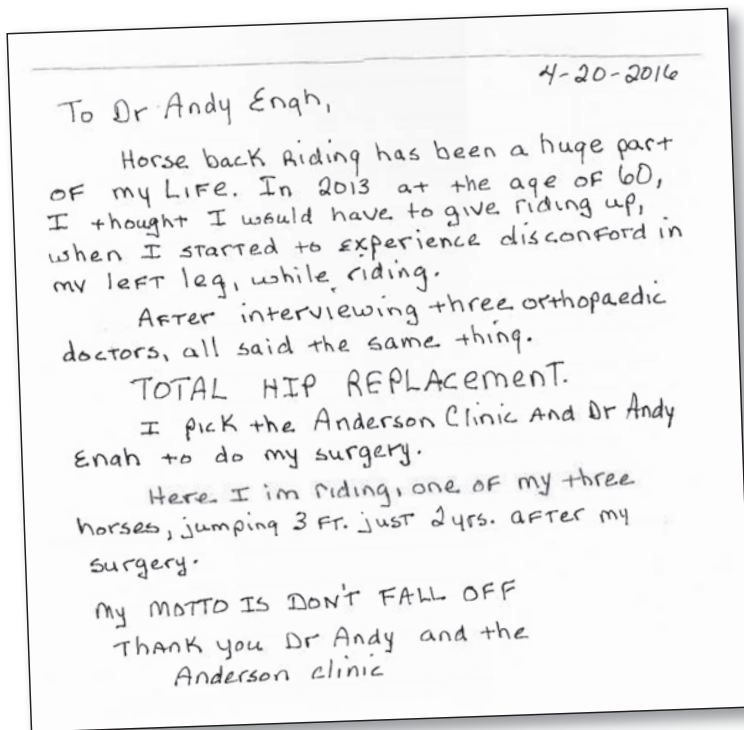 4-20-2016
To Dr Andy Engh,
Horse back Riding has been a huge part
OF my LIFE. In 2013 at the age OF 60,
I thought I would have to give riding up,
when I STARTED to Experience disconFord in
my leFT leg, while riding.
AFTer interviewing three orthopaedic
docTors, all said the same thing.
TOTAL HIP REPLACemenT.
I pick the Anderson Clinic And Dr Andy
Enah to do my surgery.
Here I im riding, one OF my three
horses, jumping 3 FT. jusT 2 yrs. aFTer my
surgery.
My MOTTO IS DON'T FALL OFF
THANK you Dr Andy and the
Anderson clinic